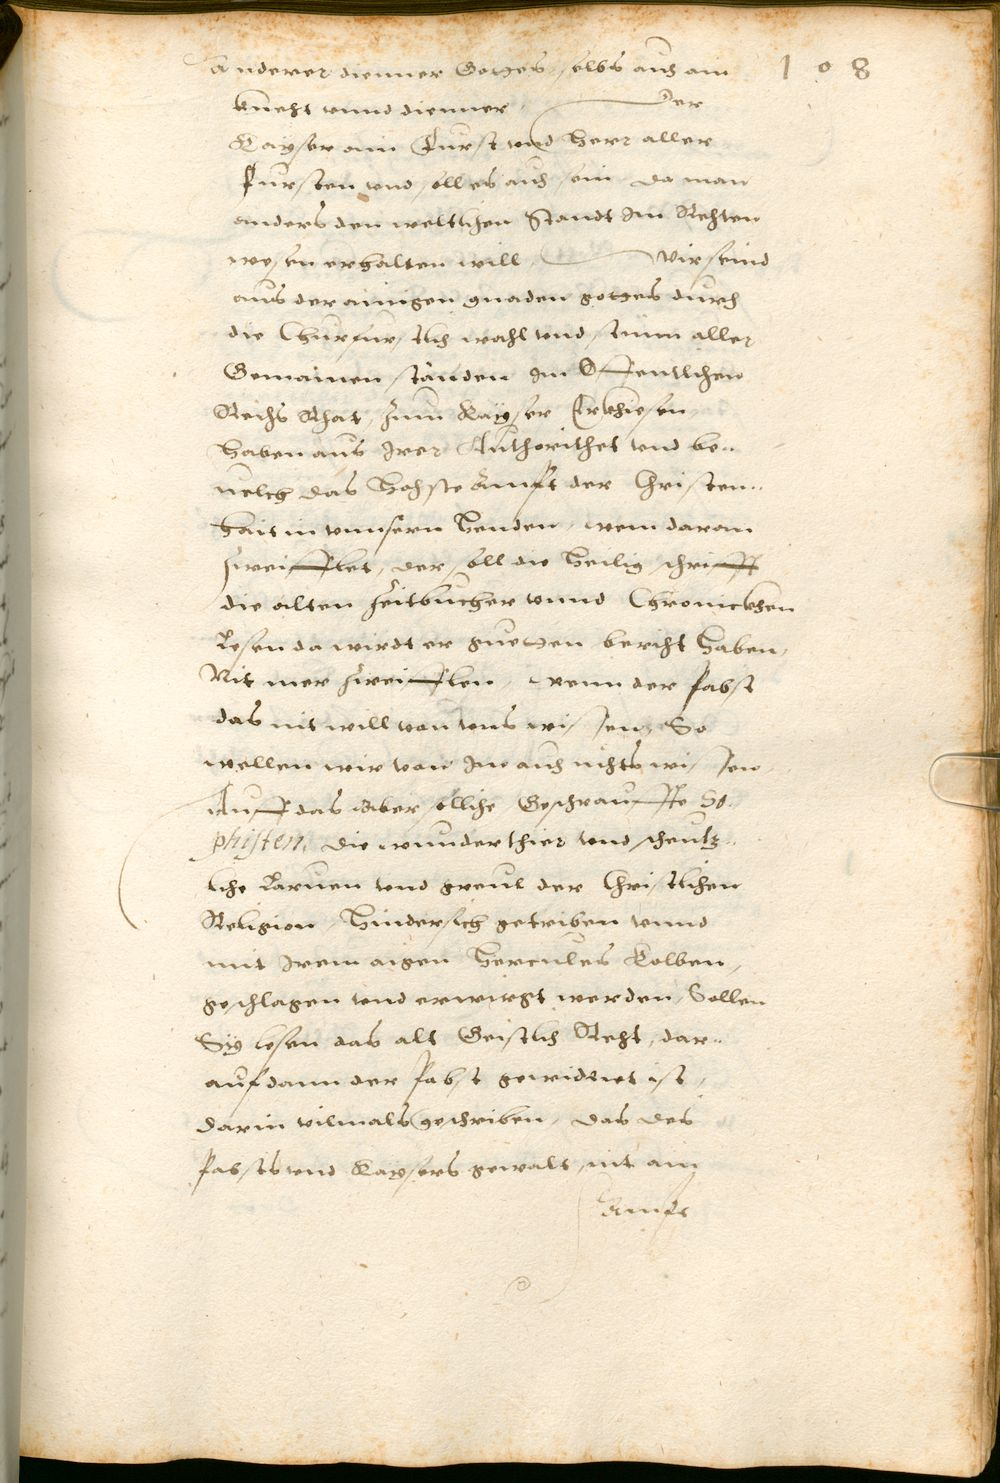 108
anderer dienner Gottes, selbs auch ain
knecht vnnd dienner. Der
Kayser ain Fürst vnd Herr aller
Fürsten vnd soll es auch sein da man
anders den weltlichen Standt Im Rechten
wesen erhalten will. Wir seind
aus der ainigen gnaden gottes durch
die Churfürstlich wahl vnd stimm aller
Gemainen ständen Im Offentlichen
Reichs Rhat, zum Kayser Erkhiesen,
Haben aus Irer Authorithet vnd be-
uelch das Höchste Ampt der Christen-
hait in vnnsern Henden, wem daran
zweifflet, der soll die Heilig schrifft
die alten Zeitbücher vnnd Chronickhen
Lesen da wirdt er guetten bericht Haben,
Nit mer zweifflen, wenn der Pabst
das nit will von vns wissen, So
wellen wir von Im auch nichts wissen,
Auff das aber solliche Geschrauffte So-
phisten, die wunderthier vnd scheutz-
liche Laruen vnd greul der Christlichen
Religion, Hindersich getriben vnnd
mit Irem aigen Hercules Kolben,
geschlagen vnd erwirgt werden, Sollen
Sy lesen das alt Geistlich Recht, dar-
auf dann der Pabst gewidmet ist,
darin vilmals geschriben, das des
Pabsts vnd Kaysers gewalt, nit am
Ampt